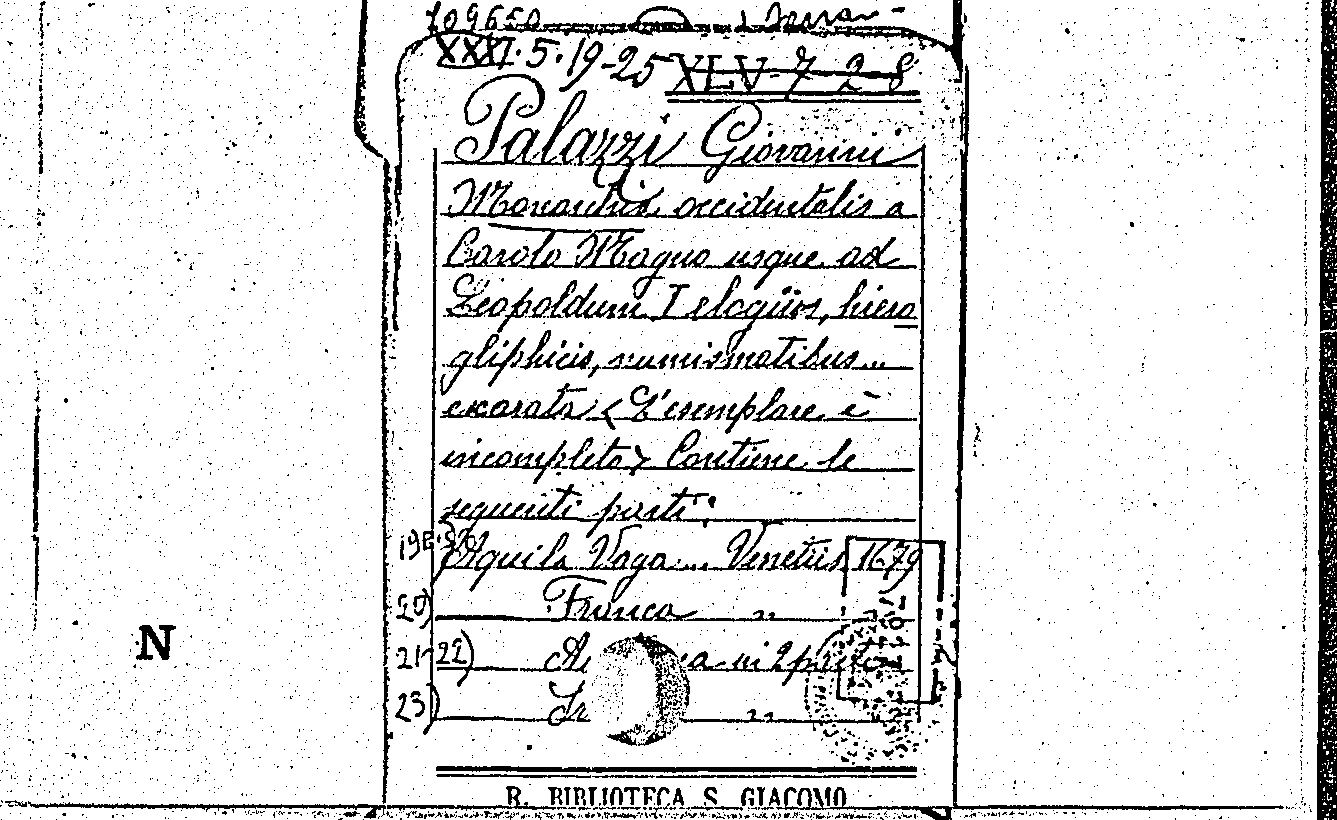 109650
XXXI.5.19-25 XLV-7-2-8
Palazzi Giovanni
Monarchia occidentalis a
Carolo Magno usque ad
Leopoldum I elogüs, hiero
gliphicis, numismatibus...
exarata < L'esemplare è
incompleto > Contiene le
seguenti parti:
19 Aquila Vaga ... Venetüs 1679
20) Franca "
21-22) in 2 parti
23) "
N
R. BIBLIOTECA S. GIACOMO